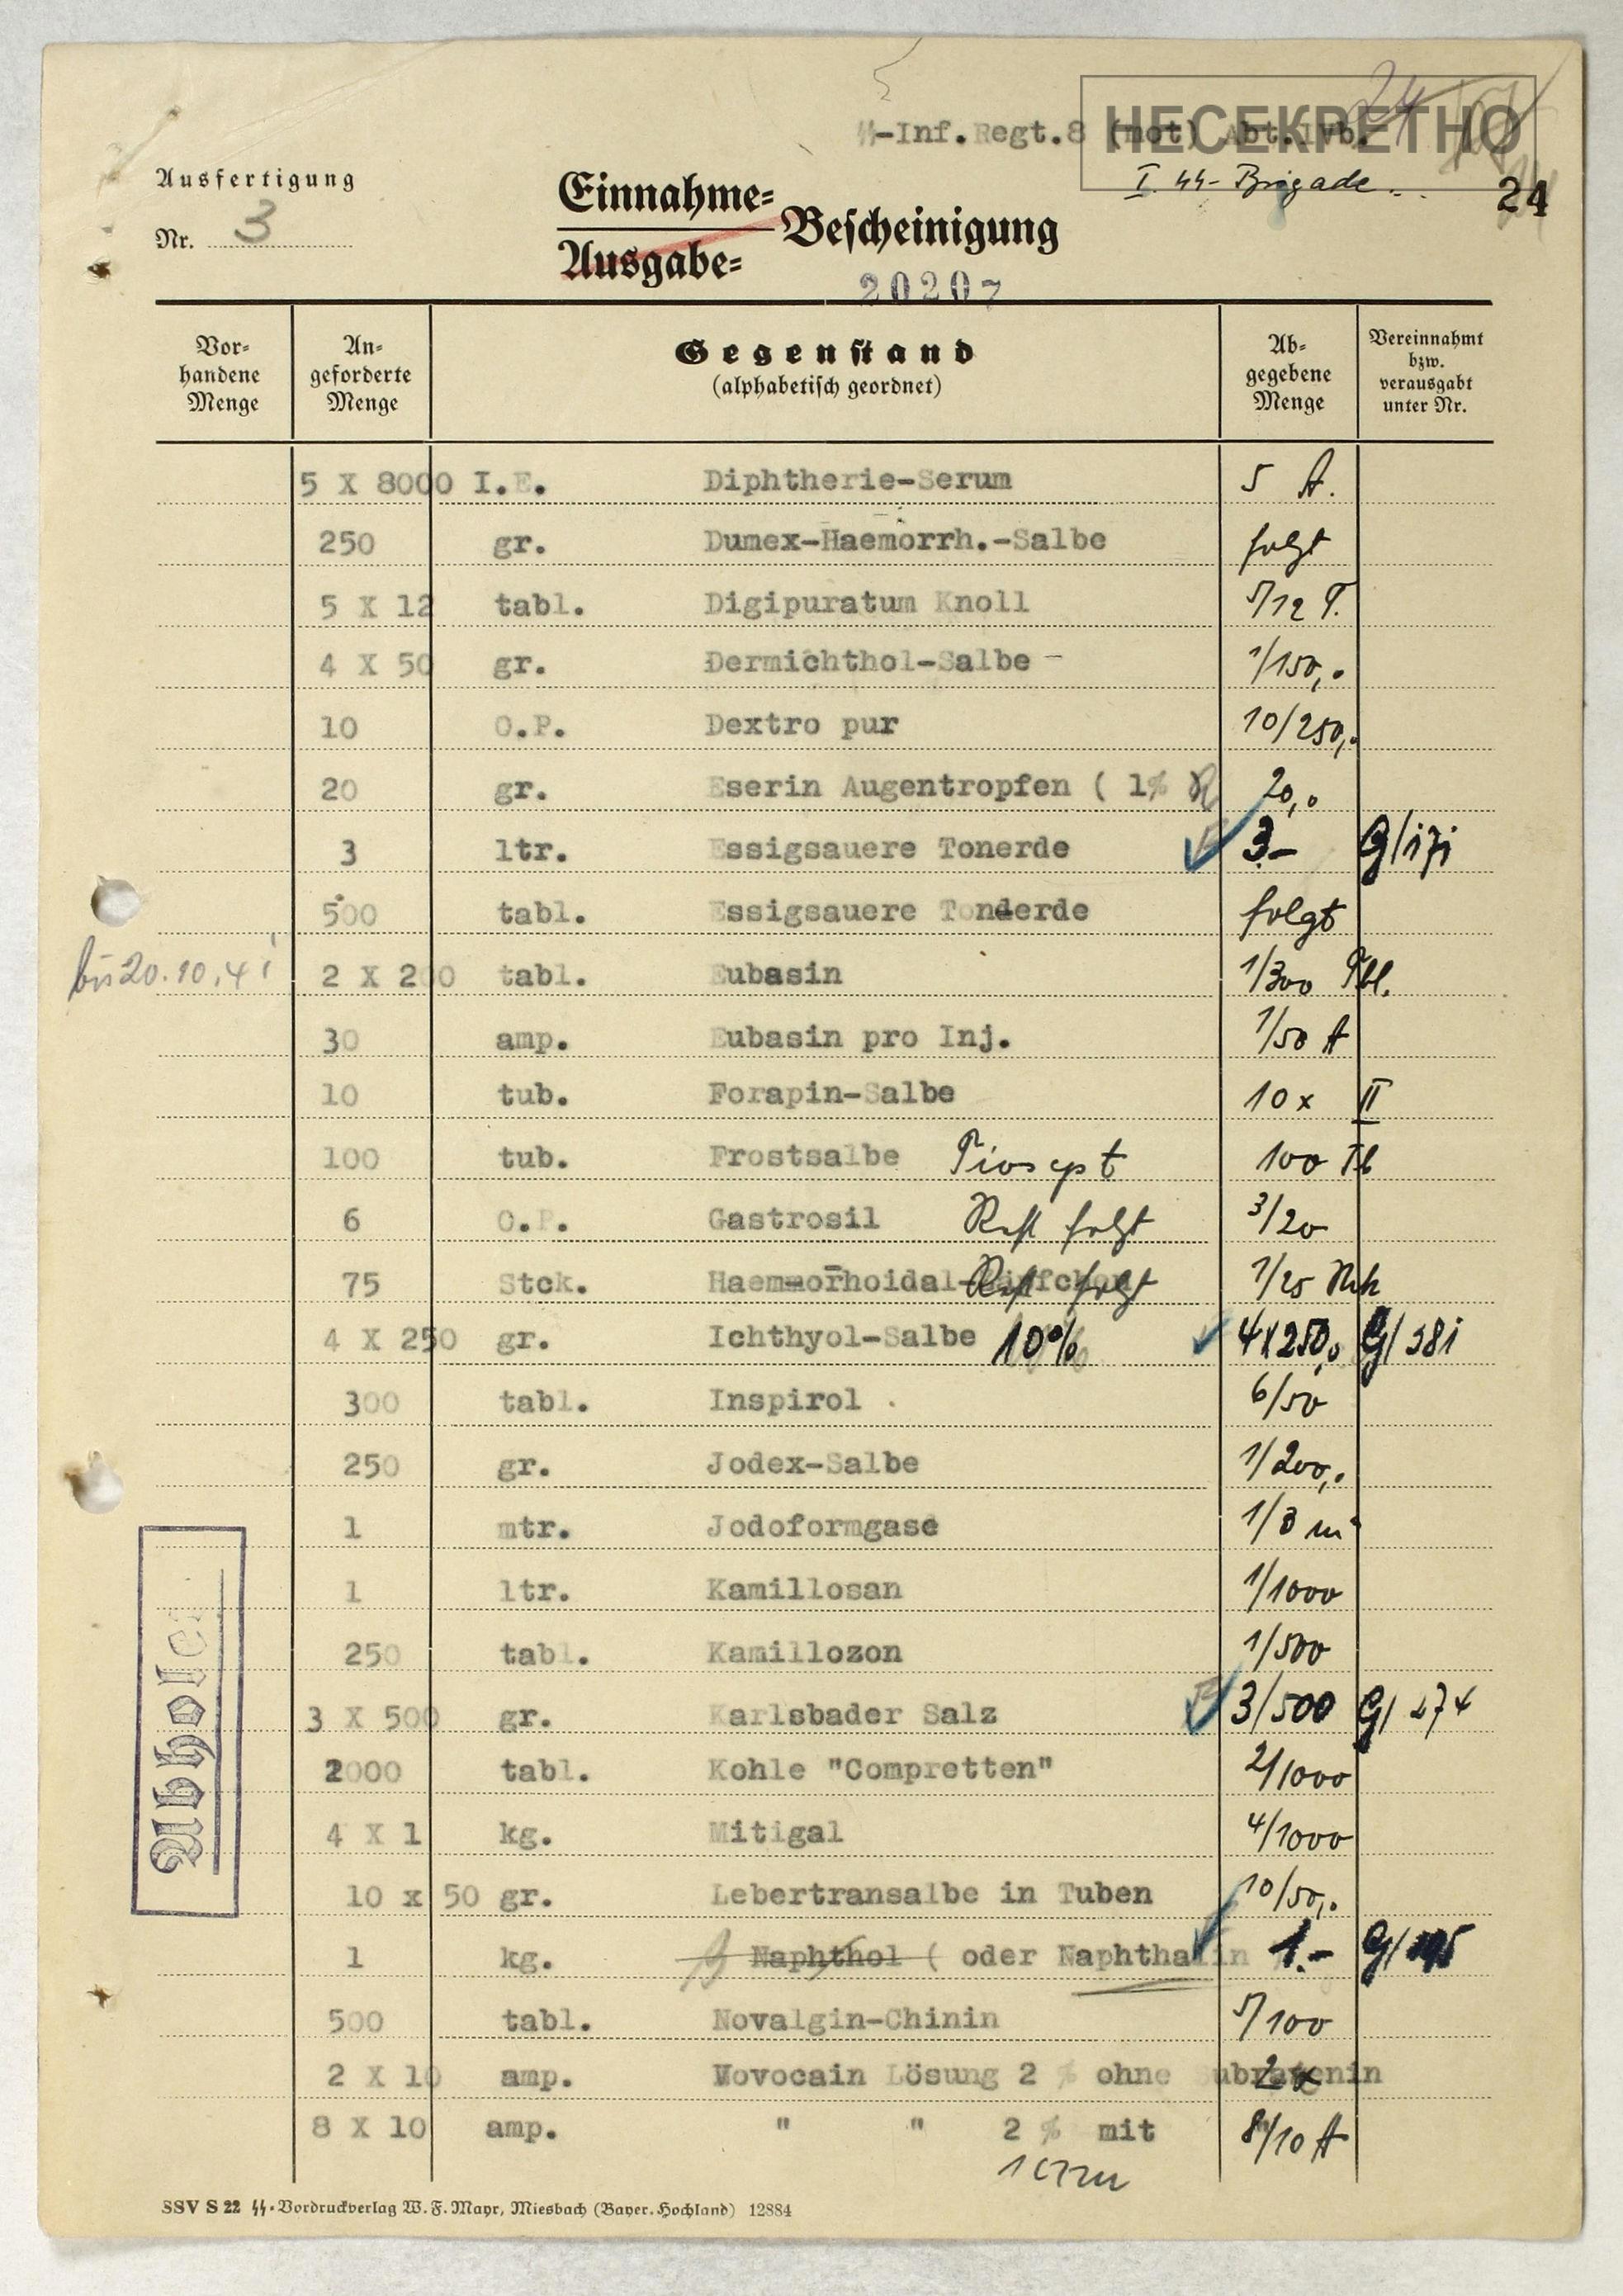 24
НЕСЕКРЕТНО
ᛋᛋ-Inf.Regt.8 (mot) Abt.IVb.
I. ᛋᛋ- Brigade.
24
Ausfertigung
Nr. 3
Einnahme-
Ausgabe-
Bescheinigung
20207
Vor-handene Menge | An-geforderte Menge | Gegenstand (alphabetisch geordnet) | Ab-gegebene Menge | Vereinnahmt bzw. verausgabt unter Nr.
5 X 8000 I.E. Diphtherie-Serum 5 A.
250 gr. Dumex-Haemorrh.-Salbe folgt
5 X 12 tabl. Digipuratum Knoll 5/12 T.
4 X 50 gr. Dermichthol-Salbe - 1/150,.
10 O.P. Dextro pur 10/250,.
20 gr. Eserin Augentropfen ( 1% 20,0
3 ltr. Essigsauere Tonerde 3.- G/171
500 tabl. Essigsauere Tonderde folgt
bis 20.10.41 2 X 200 tabl. Eubasin 1/300 Tbl.
30 amp. Eubasin pro Inj. 1/50 A
10 tub. Forapin-Salbe 10 x II
100 tub. Frostsalbe Piosept 100 Tb
6 O.P. Gastrosil Rest folgt 3/20
75 Stck. Haemmorhoidal-Zäpfchen Rest folgt 1/25
4 X 250 gr. Ichthyol-Salbe 10% 4x250,0 G/381
300 tabl. Inspirol 6/50
250 gr. Jodex-Salbe 1/200,.
1 mtr. Jodoformgase 1/3 m
1 ltr. Kamillosan 1/1000
250 tabl. Kamillozon 1/500
3 X 500 gr. Karlsbader Salz 3/500 G/274
2000 tabl. Kohle "Compretten" 2/1000
4 X 1 kg. Mitigal 4/1000
10 x 50 gr. Lebertransalbe in Tuben 10/50,.
1 kg. Naphthol ( oder Naphthalin 1.- G/
500 tabl. Novalgin-Chinin 5/100
2 X 10 amp. Novocain Lösung 2 % ohne Subrarenin 2x
8 X 10 amp. " " 2 % mit " 8/10 A
1 ccm
Abholer
SSV S 22 ᛋᛋ-Vordruckverlag W. F. Mayr, Miesbach (Bayer. Hochland) 12884